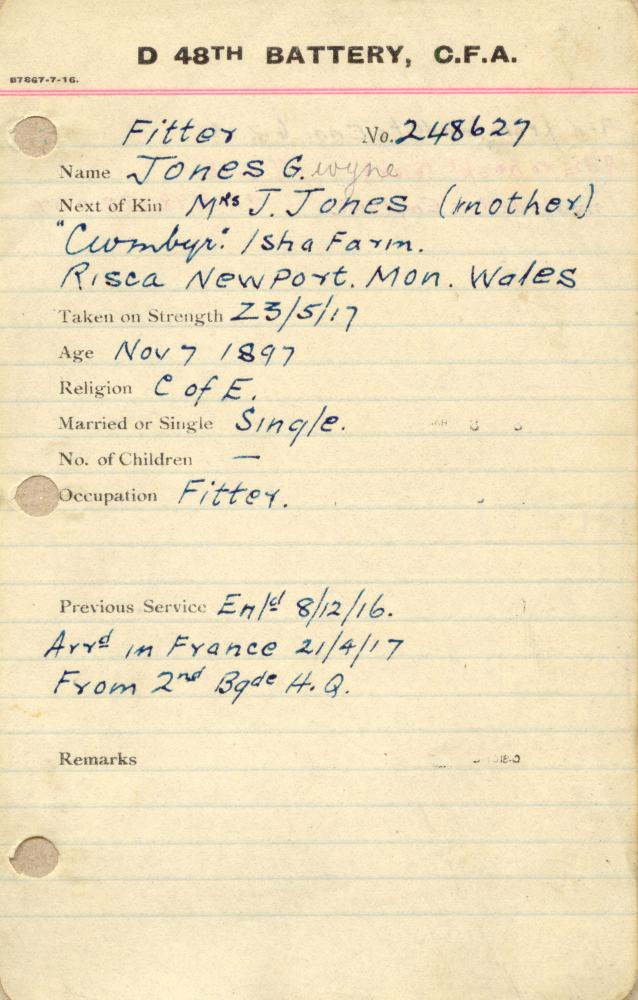 D 48TH BATTERY, C.F.A.
B7867-7-16.
Fitter No. 248627
Name Jones G. wyne
Next of Kin Mrs J. Jones (mother)
"Cwmbyr". Isha Farm.
Risca Newport. Mon. Wales
Taken on Strength 23/5/17
Age Nov 7 1897
Religion C of E.
Married or Single Single.
No. of Children —
Occupation Fitter.
Previous Service Enld 8/12/16.
Arrd in France 21/4/17
From 2nd Bgde H.Q.
Remarks